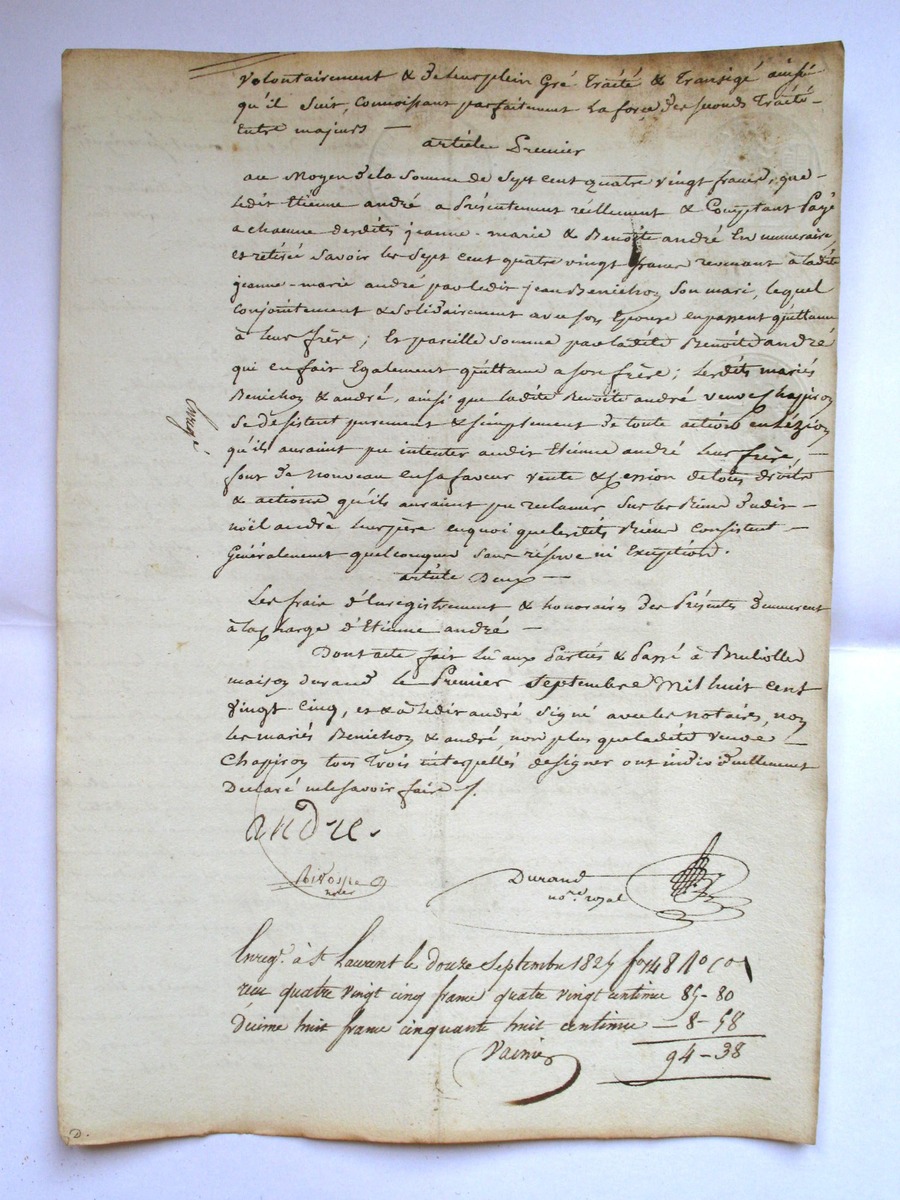 volontairement & de leur plein Gré Traité & Transigé ainsi
qu'il suit, connoissant parfaitement La force des seconds Traités
Entre majeurs —
article Premier
au Moyen de la Somme de Sept cent quatre vingt francs, que
Ledit Etienne andré a Présentement réellement & Comptant Payé
a chacune desdites jeanne-marie & Benoite andré En numeraire,
et retirée Savoir les Sept cent quatre vingt francs revenant à ladite
jeanne-marie andré par ledit jean Benichon Son mari, lequel
conjointement & solidairement avec son Epouse en passent quittance
à leur frère ; Et pareille Somme par ladite Benoite andré
qui en fait Egalement quittance a son frère ; Lesdits mariés
Benichon & andré, ainsi que ladite Benoite andré veuve Chapiron
Se désistent purement & simplement de toute action en Lézion
qu'ils auraient pu intenter audit Etienne andré Leur frère, —
font de nouveau en sa faveur vente & Cession de tous droits
& actions qu'ils auraient pu reclamer Sur les Biens dudit —
noël andré Leur père en quoi que lesdits Biens Consistent —
Généralement quelconques Sans réserve ni Exception.
article Deux —
Les frais d'Enregistrement & honoraires des Présentes demeurent
à la Charge d'Etienne andré —
Dont acte fait Lû aux Parties & Passé à Brulliolle
maison durand le Premier Septembre Mil huit cent
vingt-cinq, et a ledit andré Signé avec les notaires, non
les mariés Benichon & andré, non plus que ladite veuve —
Chapiron tous Trois interpellés de signer ont individuellement
Declaré ne le Savoir faire /.
andre.
notre
Durand
no.re royal
Enreg.
Enreg.t à S.t Laurent le douze Septembre 1825 f.o 148
reçu quatre vingt cinq francs quatre vingt centimes 85-80
Décime huit francs cinquante huit centimes — 8-58
94-38
D.